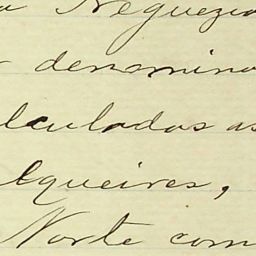 a Freguezia
denomina
lculadas as
lqueires,
Norte com